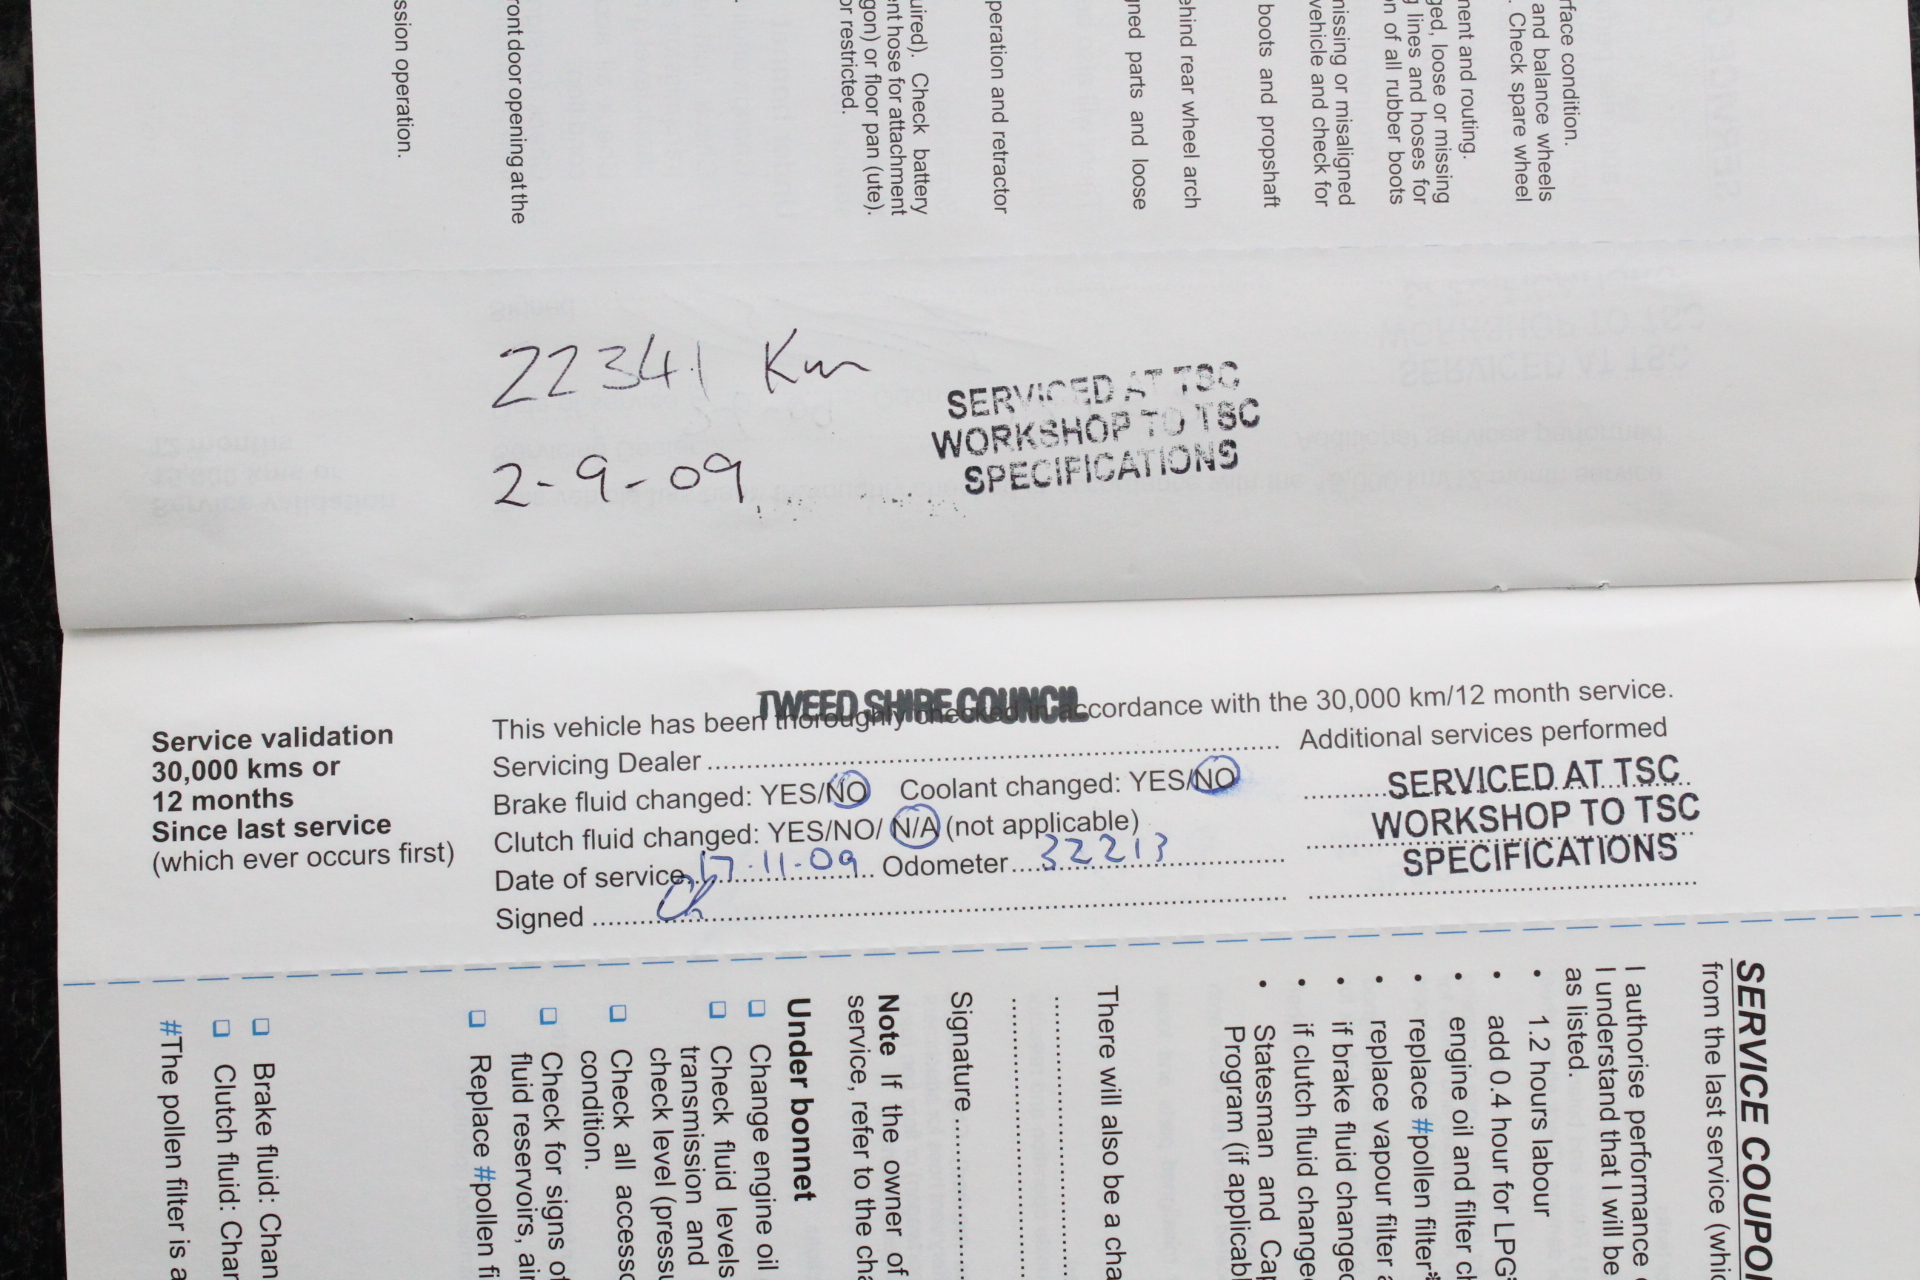 ssion operation.
ront door opening at the
uired). Check battery
nt hose for attachment
gon) or floor pan (ute).
or restricted.
peration and retractor
ned parts and loose
ehind rear wheel arch
boots and propshaft
missing or misaligned
vehicle and check for
ment and routing.
ged, loose or missing
g lines and hoses for
n of all rubber boots
rface condition.
and balance wheels
. Check spare wheel
22341 Km
2-9-09
SERVICED AT TSC
WORKSHOP TO TSC
SPECIFICATIONS
Service validation
30,000 kms or
12 months
Since last service
(which ever occurs first)
TWEED SHIRE COUNCIL
This vehicle has been thoroughly checked in accordance with the 30,000 km/12 month service.
Servicing Dealer
Brake fluid changed: YES/NO Coolant changed: YES/NO
Clutch fluid changed: YES/NO/ N/A (not applicable)
Date of service 17-11-09 Odometer 32213
Signed
Additional services performed
SERVICED AT TSC
WORKSHOP TO TSC
SPECIFICATIONS
SERVICE COUPO
from the last service (whic
I authorise performance o
I understand that I will be
as listed.
• 1.2 hours labour
• add 0.4 hour for LPG
• engine oil and filter ch
• replace #pollen filter*
• replace vapour filter a
• if brake fluid changed
• if clutch fluid changed
• Statesman and Cap
Program (if applicabl
There will also be a cha
Signature
Note If the owner of
service, refer to the cha
Under bonnet
❑ Change engine oil
❑ Check fluid levels
transmission and
check level (pressu
❑ Check all accesso
condition.
❑ Check for signs of
fluid reservoirs, air
❑ Replace #pollen fi
❑ Brake fluid: Chan
❑ Clutch fluid: Chan
#The pollen filter is a